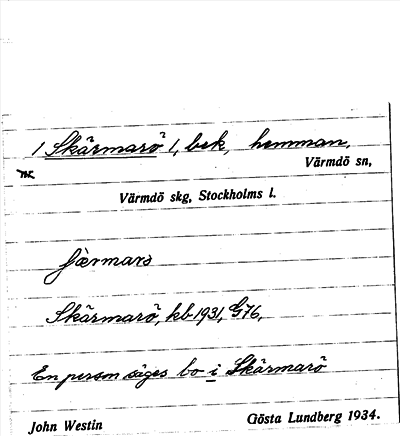 1 Skärmarö 1, bek, hemman,
Värmdö sn,
Värmdö skg, Stockholms l.
Skärmarö, kb 1931, G76,
En person säges bo i Skärmarö
John Westin
Gösta Lundberg 1934.